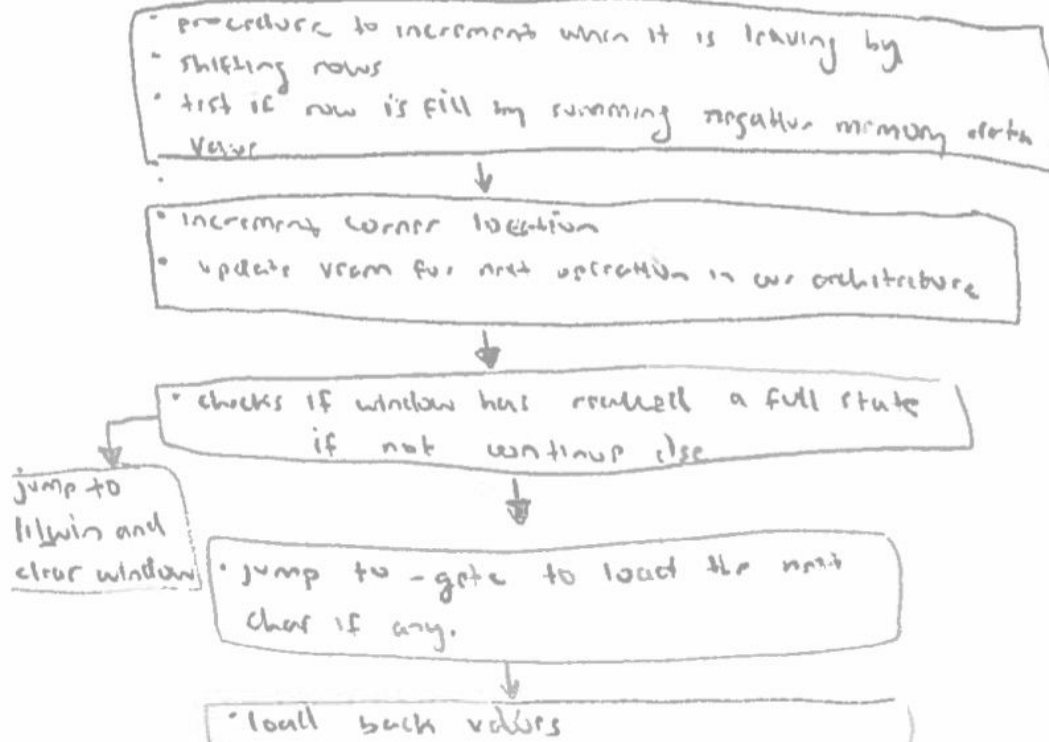 • procedure to increment when it is leaving by
• shifting rows
• test if row is fill by summing negative memory data
value
•
• increment corner location
• update vram for next operation in our architecture
• checks if window has reached a full state
if not continue else
jump to
and
clear window
• jump to -getc to load the next
char if any.
• load back values